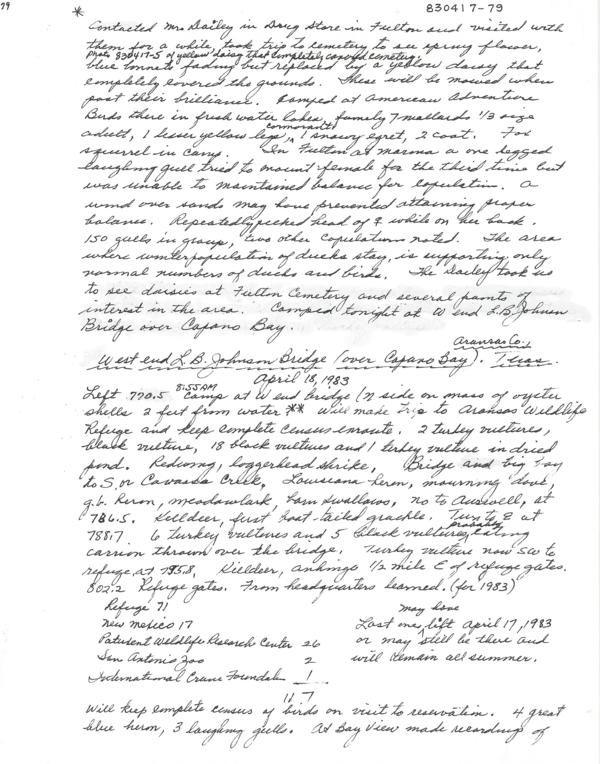 79
*
830417-79
Contacted Mr. Dailey in Drug Store in Fulton and visited with
them for a while, took trip to cemetery to see spring flower,
photo 830417-5 of yellow daisy that completely covered cemetery.
blue bonnets fading but replaced by a yellow daisy that
completely covered the grounds. These will be mowed when
past their brilliance. Camped at American Adventure
Birds there in fresh water lakes, family 7 mallards 1/3 size
adult, 1 lesser yellow legs, cormorants, 1 snowy egret, 2 coot. Fox
squirrel in camp. In Fulton at marina a one legged
laughing gull tried to mount female for the third time but
was unable to maintained balance for copulation. A
wind over sands may have prevented attaining proper
balance. Repeatedly picked head of ♀ while on her back.
150 gulls in group, two other copulations noted. The area
where winter population of ducks stay, is supporting only
normal numbers of ducks and birds. The Dailey took us
to see daisies at Fulton Cemetery and several points of
interest in the area. Camped tonight at W end L.B. Johnson
Bridge over Copano Bay.
Aransas Co.,
West end L.B. Johnson Bridge (over Copano Bay). Texas.
April 18, 1983
Left 770.5 8:55 AM Camp at W end bridge (N side on mass of oyster
shells 2 feet from water ** Will made trip to Aransas Wildlife
Refuge and keep complete census enroute. 2 turkey vultures,
black vulture, 18 black vultures and 1 turkey vulture in dried
pond. Redwing, loggerhead shrike, Bridge and big bay
to S. or Cavassa Creek, Louisiana heron, mourning dove,
g.b. heron, meadowlark, barn swallows, no to Austwell, at
786.5. Killdeer, first boat-tailed grackle. Turn to E at
788.7. 6 Turkey vultures and 5 black vultures, probably eating
carrion thrown over the bridge. Turkey vulture now SW to
refuge, at 795.8, Killdeer, anhinga 1/2 mile E of refuge gates.
802.2 Refuge gates. From headquarters learned. (for 1983)
Refuge 71
New Mexico 17
Patuxent Wildlife Research Center 26
San Antonio Zoo 2
International Crane Foundation 1
117
may have
Last one, left April 17, 1983
or may still be there and
will remain all summer.
Will keep complete census of birds on visit to reservation. 4 great
blue heron, 3 laughing gulls. At Bay View made recording of